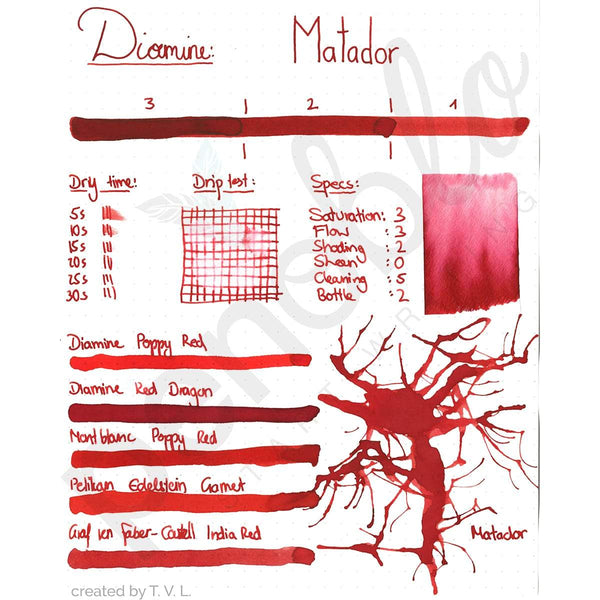 Diamine: Matador
3 2 1
Dry time: Driptest: Specs:
5s
10s
15s
20s
25s
30s
Saturation: 3
Flow : 3
Shading : 2
Sheen : 0
Cleaning : 5
Bottle : 2
Diamine Poppy Red
Diamine Red Dragon
Montblanc Poppy Red
Pelikan Edelstein Garnet
Graf von Faber-Castell India Red
Matador
created by T. V. L.